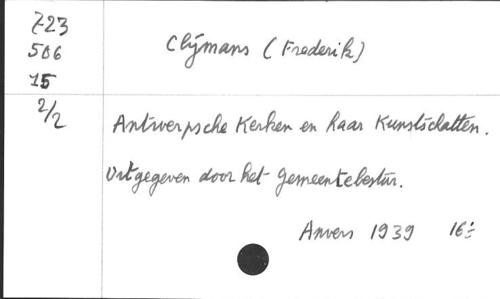 723
506
15
2/2
Clijmans (Frederik)
Antwerpsche Kerken en haar Kunstschatten.
Uitgegeven door het Gemeentebestur.
Anvers 1939 16º